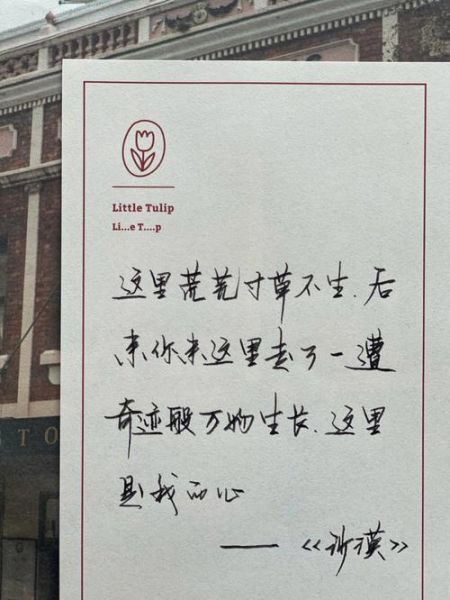 Little Tulip
Li...e T....p
这里荒芜寸草不生.后
来你来这里走了一遭
奇迹般万物生长.这里
是我的心
——《沙漠》
STO